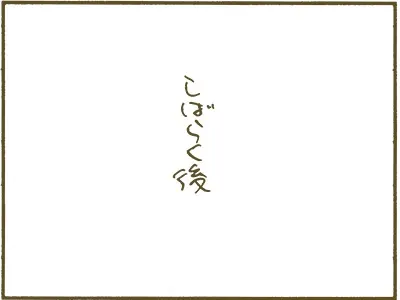 しばらく後